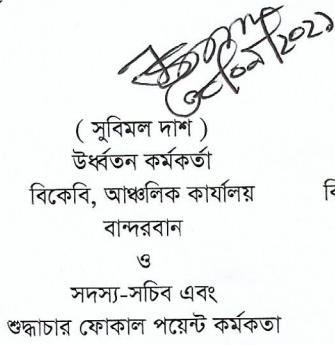 ( সুবিমল দাশ )
উর্ধ্বতন কর্মকর্তা
বিকেবি, আঞ্চলিক কার্যালয়
বান্দরবান
ও
সদস্য-সচিব এবং
শুদ্ধাচার ফোকাল পয়েন্ট কর্মকতা